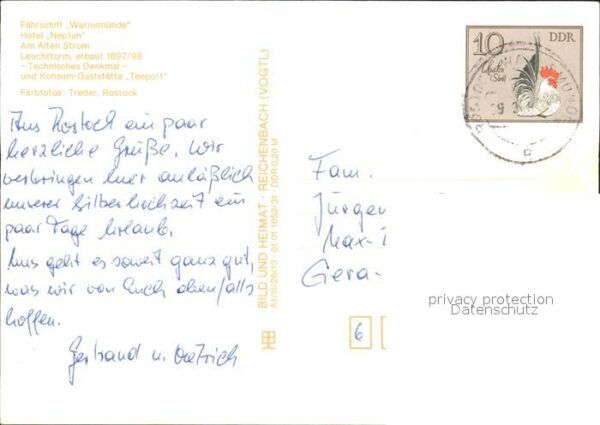 Fährschiff „Warnemünde"
Hotel „Neptun"
Am Alten Strom
Leuchtturm, erbaut 1897/98
– Technisches Denkmal –
und Konsum-Gaststätte „Teepott"
Farbfotos: Treder, Rostock
Aus Rostock ein paar
herzliche Grüße. Wir
verbringen hier anläßlich
unserer Silberhochzeit ein
paar Tage Urlaub.
Uns geht es soweit ganz gut,
was wir von Euch ebenfalls
hoffen.
u.
BILD UND HEIMAT · REICHENBACH (VOGTL)
01 01 1052/31 DDR 0,20 M
10 DDR
Fam.
Jürgen
Max-
Gera-
privacy protection
Datenschutz
6